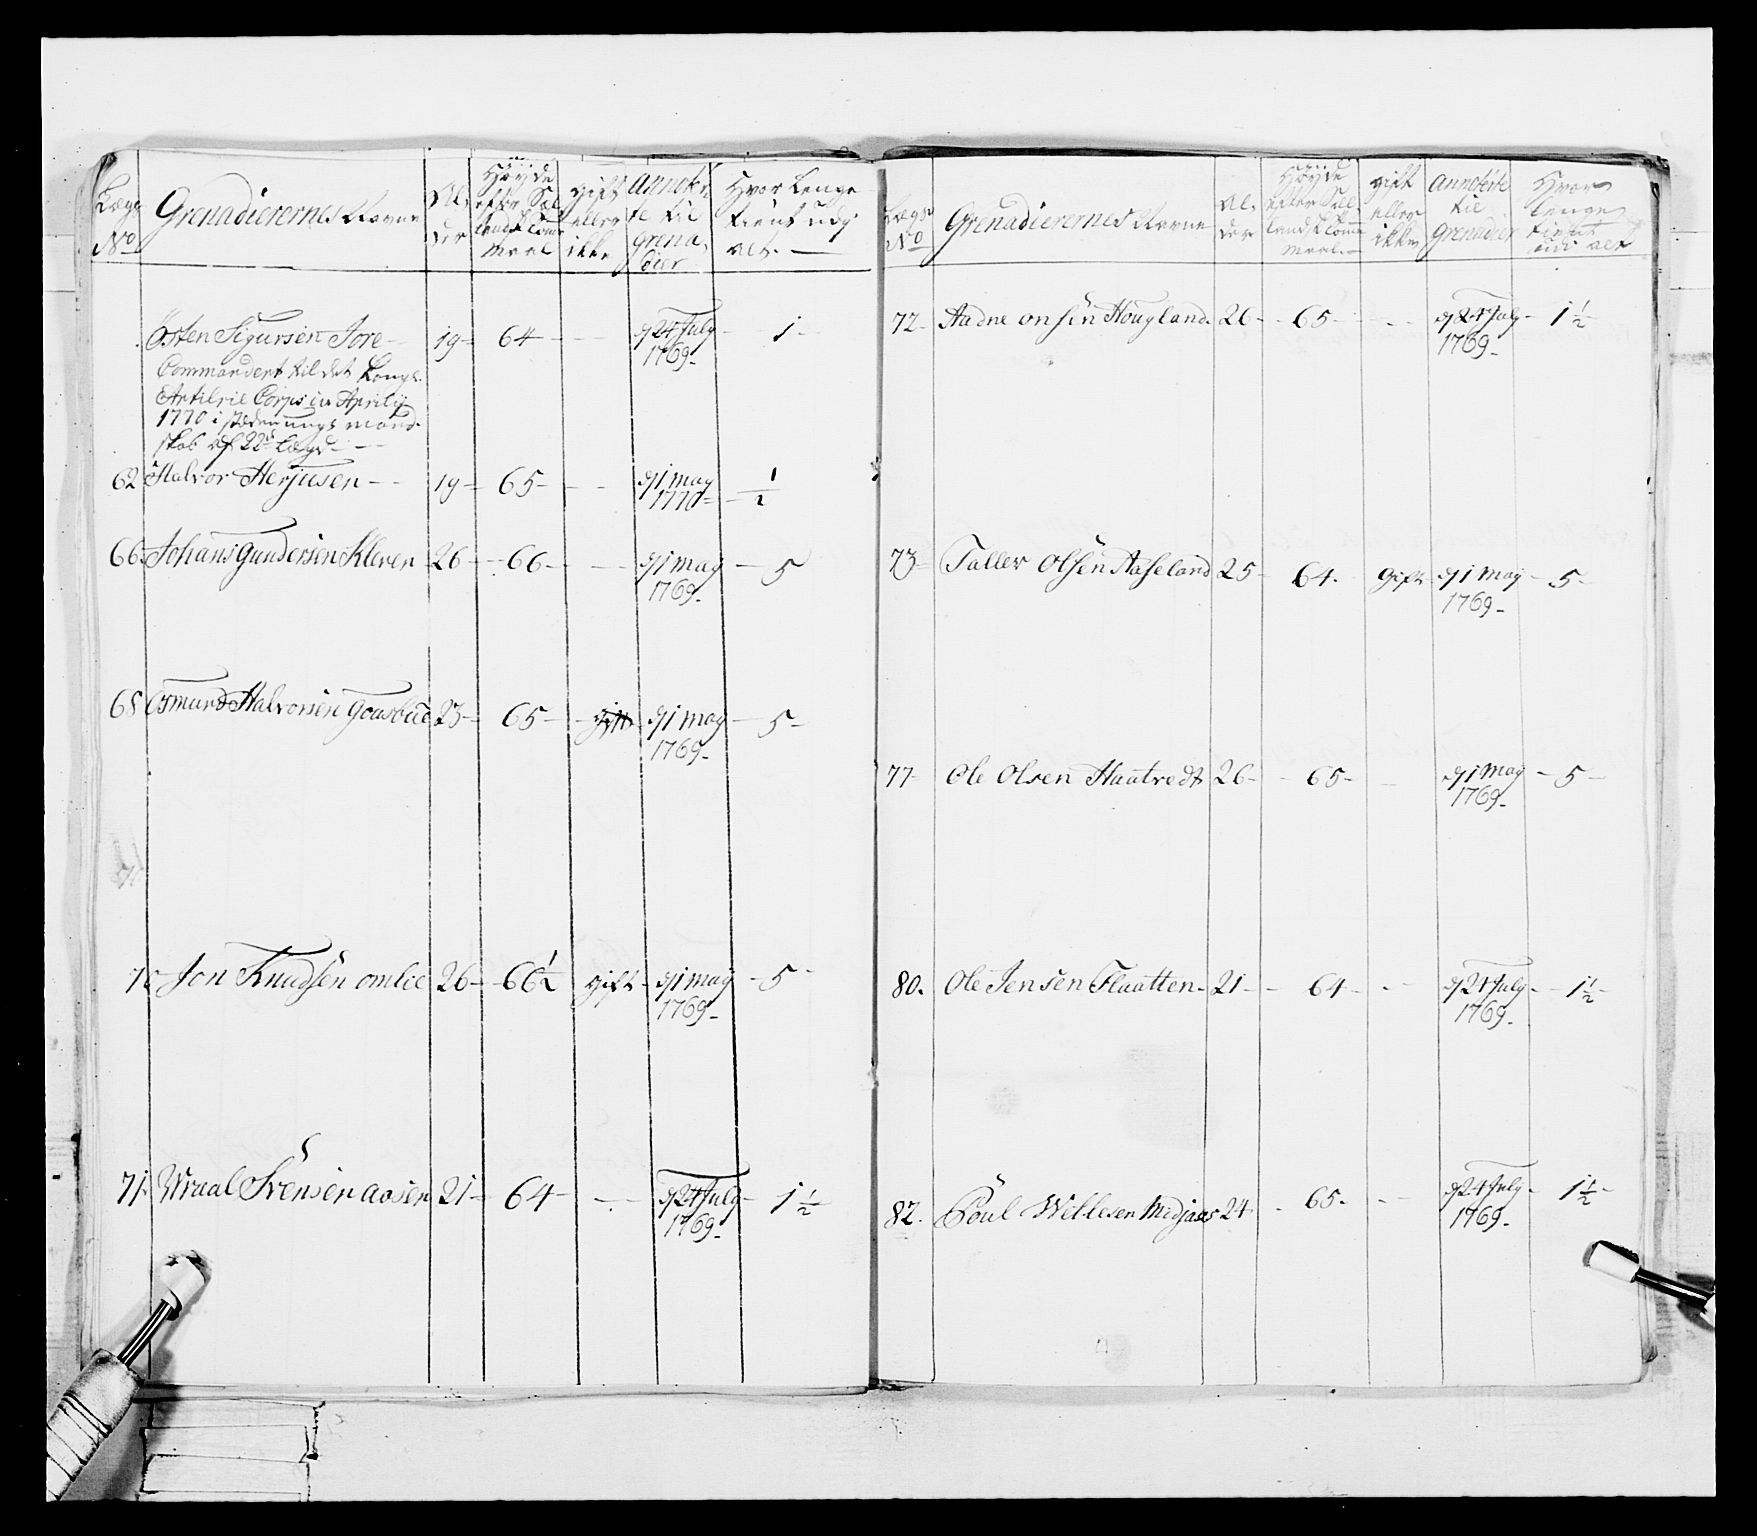 Lægs No
Grenadierernes Navne
Al-
der
Høyde
efter Sæl
landsk Tome
maal
gift
eller
ikke
Annoter
te til
Grena
dier
Hvor Lenge
tient udi
alt.
Østen Sigursen Jore - 19 - 64 - - - d 24 July 1769 - 1 -
Commandert til det Kongl.
Artilrie Corps in Aprily
1770 i stæden ungt mand
skab af 22d Lægd -
62 Halvor Herjusen - - 19 - 65 - - - d 1 may 1770 - 1/2
66 Johans Gundersen Kleven 26 - 66 - - d 1 may 1769 - 5
68 Osmund Halvorsen Goasbue 23 - 65 - gift d 1 may 1769 - 5 -
70 Jon Knudsen omlie 26 - 66 1/2 gift - d 1 may 1769 - 5 -
71. Wraal Svensen aasen 21 - 64 - - - d 24 July 1769 - 1 1/2
Lægs
No
Grenadierernes Navne
Al-
der
Høyde
efter Sæl
landsk Tome
maal
gift
eller
ikke
annoterte
til
Grenadier
Hvor
lenge
tient
udi alt
72 - Aadne onsen Hougland. 26 - 65 - - - d 24 July 1769 - 1 1/2
73 - Taller Olsen Aaseland 25 - 64. gift d 1 May 1769 - 5 -
77 - Ole Olsen Haatvedt 26 - 65 - - d 1 May 1769 - 5 -
80. Ole Jensen Flaatten - 21 - 64 - - - d 24 July 1769 - 1 1/2
82. Poul Wellesen Midjaas 24 - 65 - - - d 24 July 1769 - 1 1/2